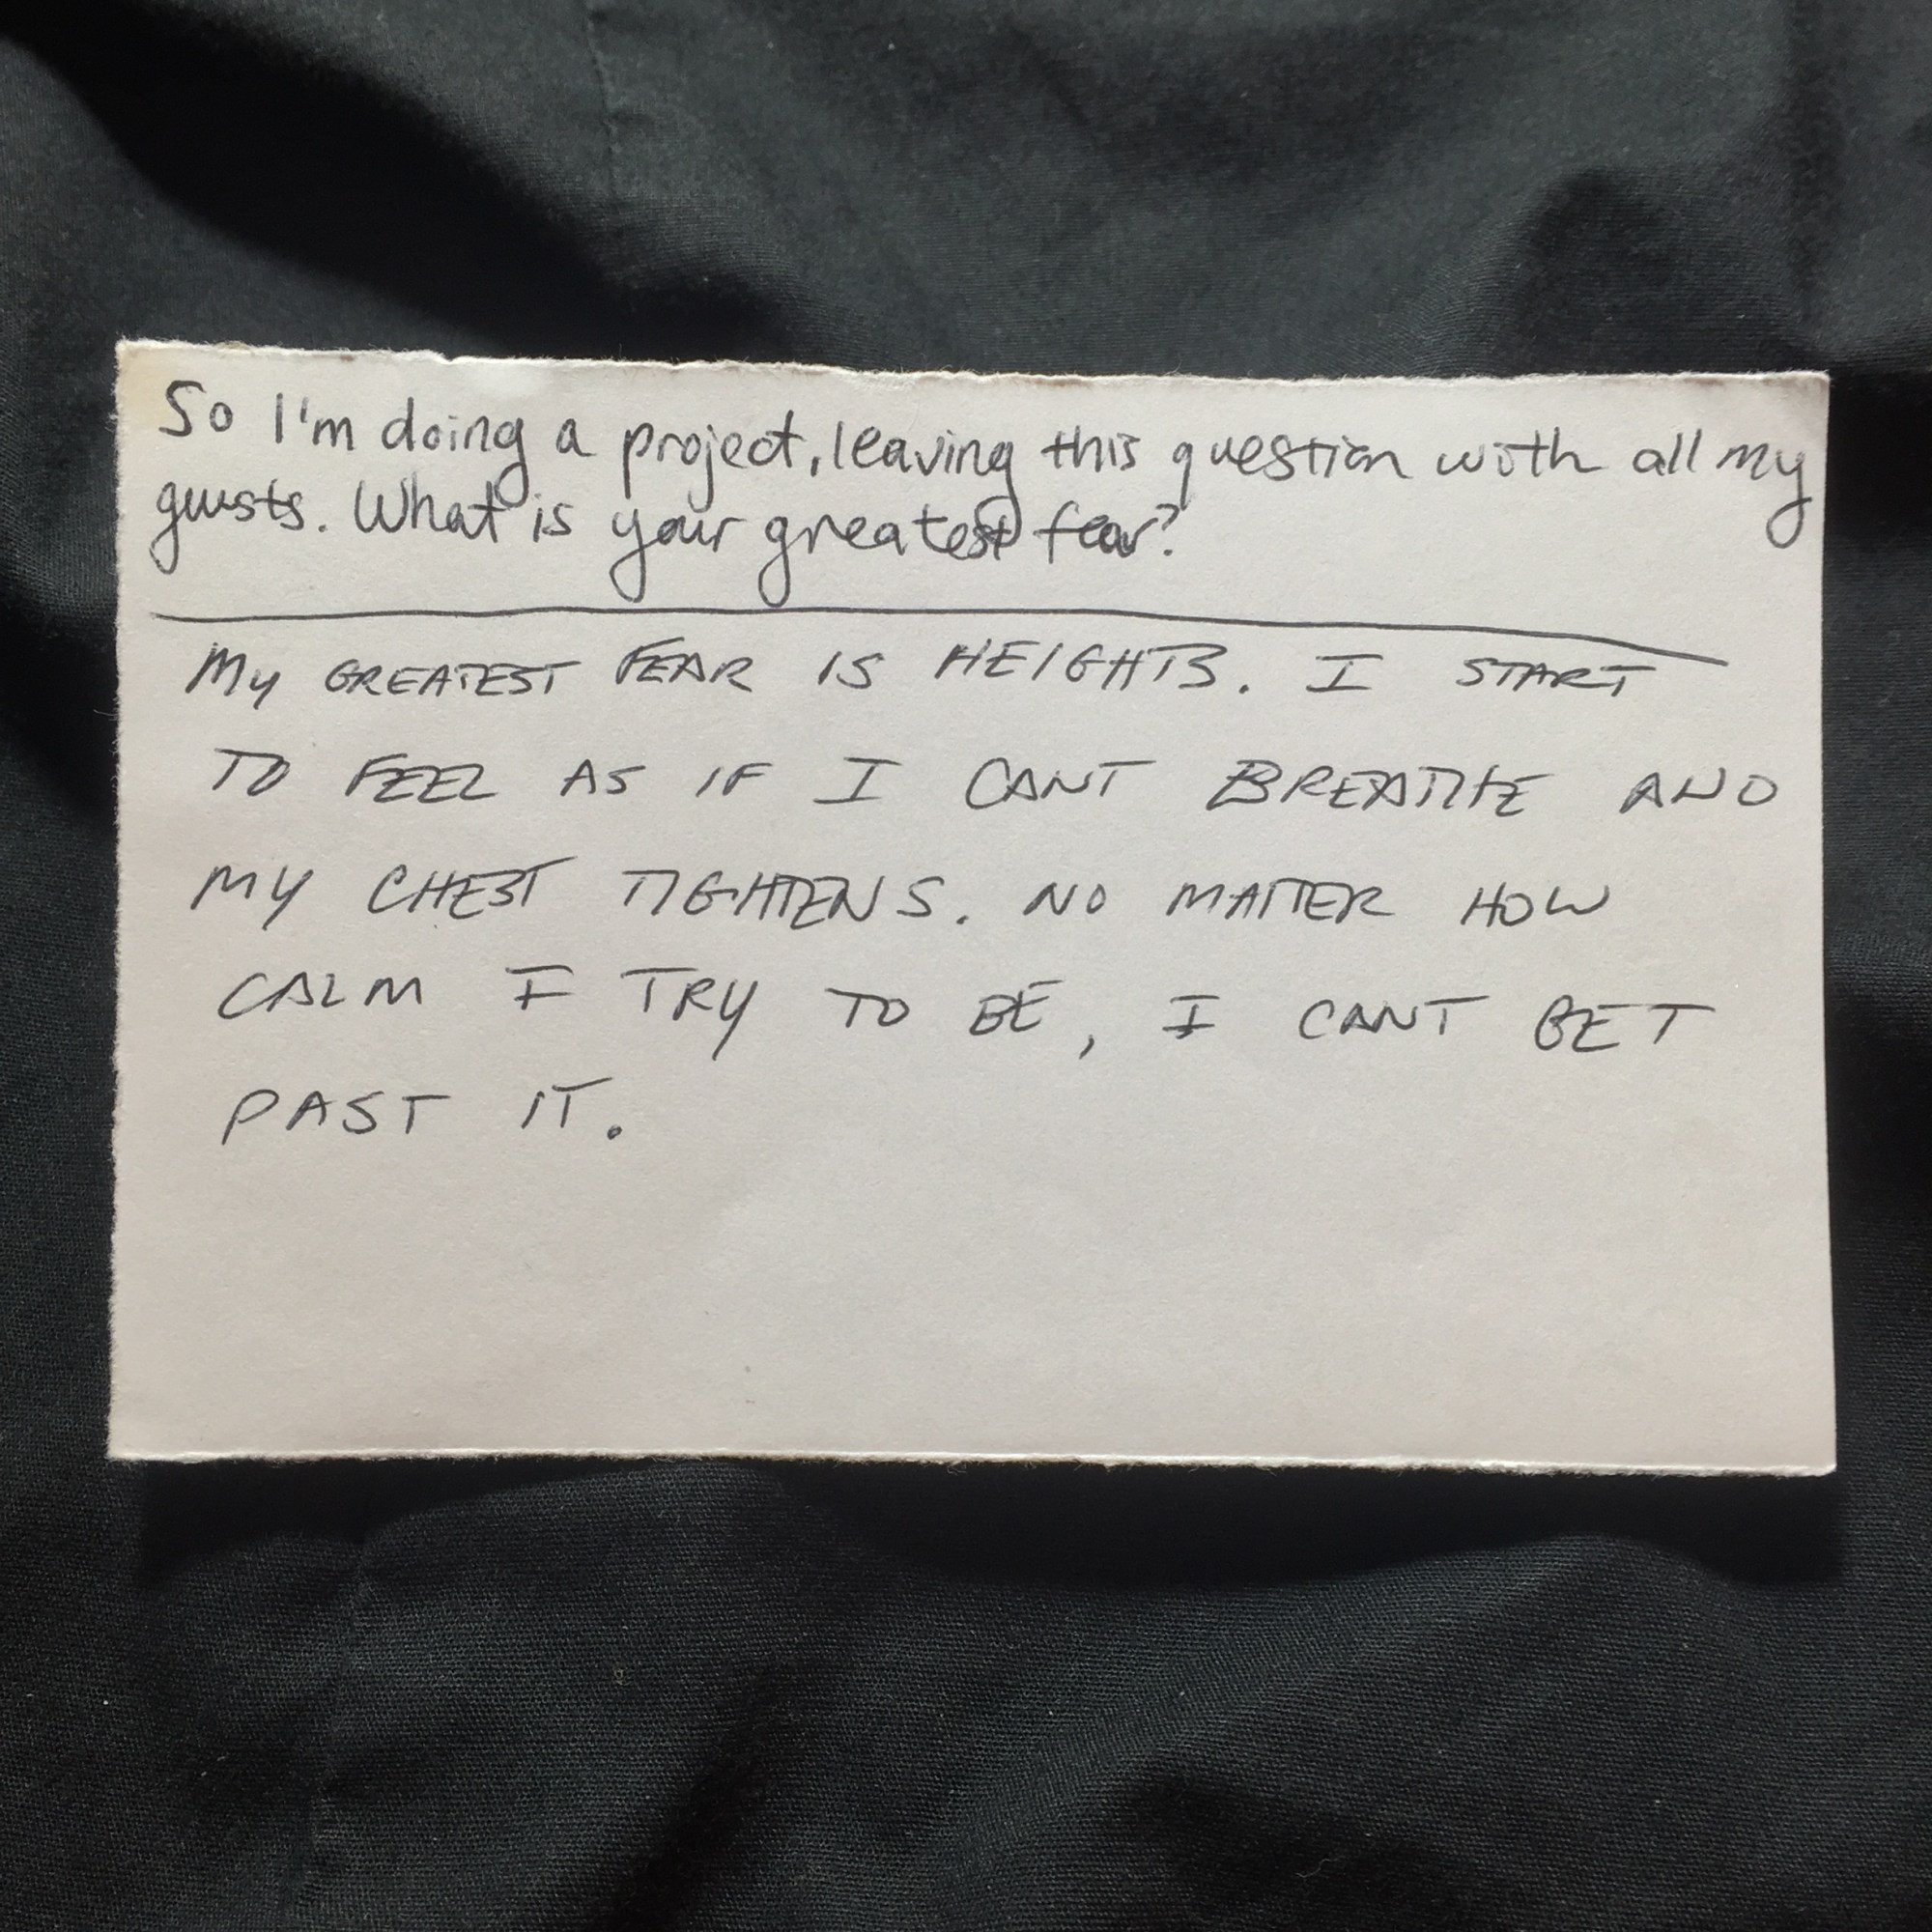 So I'm doing a project, leaving this question with all my
guests. What is your greatest fear?
MY GREATEST FEAR IS HEIGHTS. I START
TO FEEL AS IF I CANT BREATHE AND
MY CHEST TIGHTENS. NO MATTER HOW
CALM I TRY TO BE, I CANT GET
PAST IT.